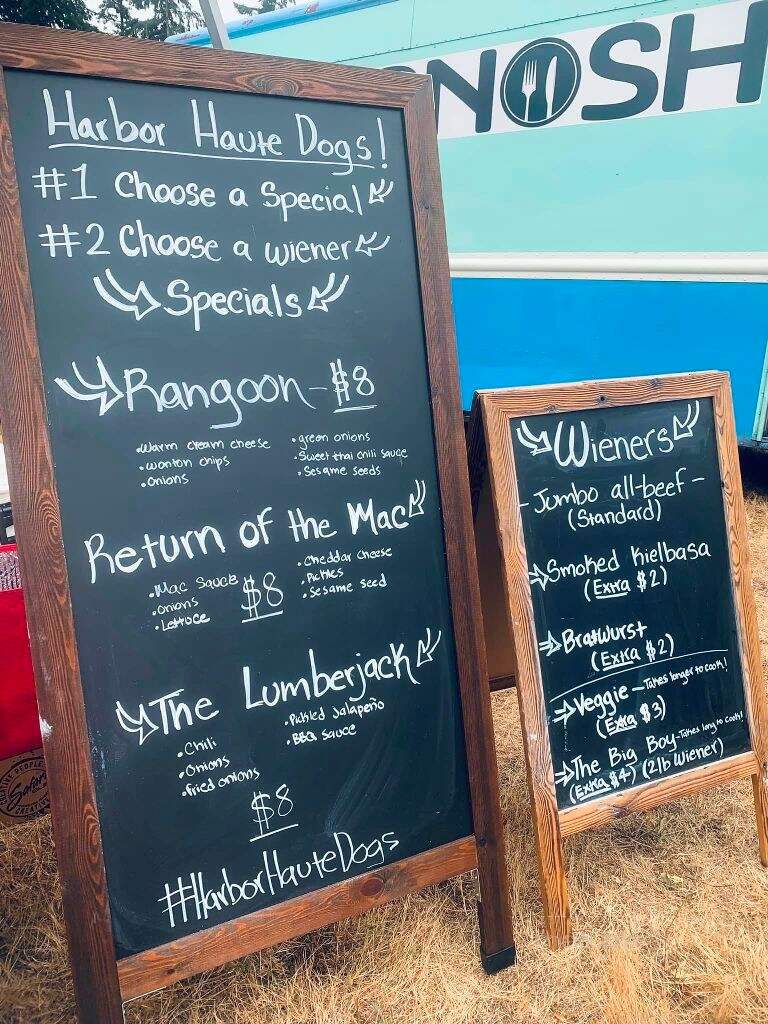 NOSH
Harbor Haute Dogs!
#1 Choose a Special
#2 Choose a wiener
Specials
Rangoon - $8
• Warm cream cheese
• wonton chips
• Onions
• green onions
• Sweet thai chili sauce
• Sesame seeds
Return of the Mac
• Mac Sauce
• Onions
• Lettuce
$8
• Cheddar cheese
• Pickles
• Sesame seed
The Lumberjack
• Chili
• Onions
• fried onions
• Pickled Jalapeño
• BBQ Sauce
$8
#HarborHauteDogs
Wieners
- Jumbo all-beef -
(Standard)
Smoked Kielbasa
(Extra $2)
Bratwurst
(Extra $2)
Veggie - Takes longer to cook!
(Extra $3)
The Big Boy - Takes long to cook!
(Extra $4) (2lb Wiener)